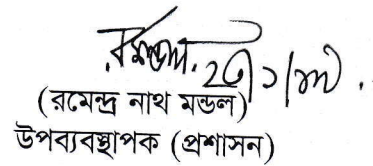 (রমেন্দ্র নাথ মন্ডল)
উপব্যবস্থাপক (প্রশাসন)